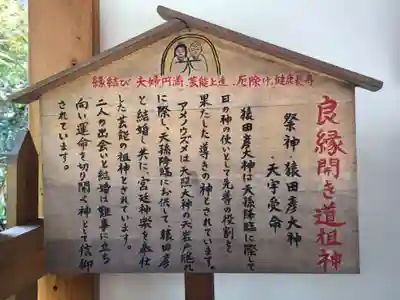 縁結び 夫婦円満、芸能上達、厄除け、健康長寿
良縁開き道祖神
祭神・猿田彦大神
・天宇受命
猿田彦大神は天孫降臨に際して
日の神の使いとして先導の役割を
果たした導きの神とされています。
アメノウズメは天照大神の天岩戸隠れ
に際し、天孫降臨にお供して猿田彦
と結婚し夫に、宮廷神楽を奉仕
した芸能の祖神とされています。
二人の出会いと結婚は難事に立ち
向い運命を切り開く神として信仰
されています。